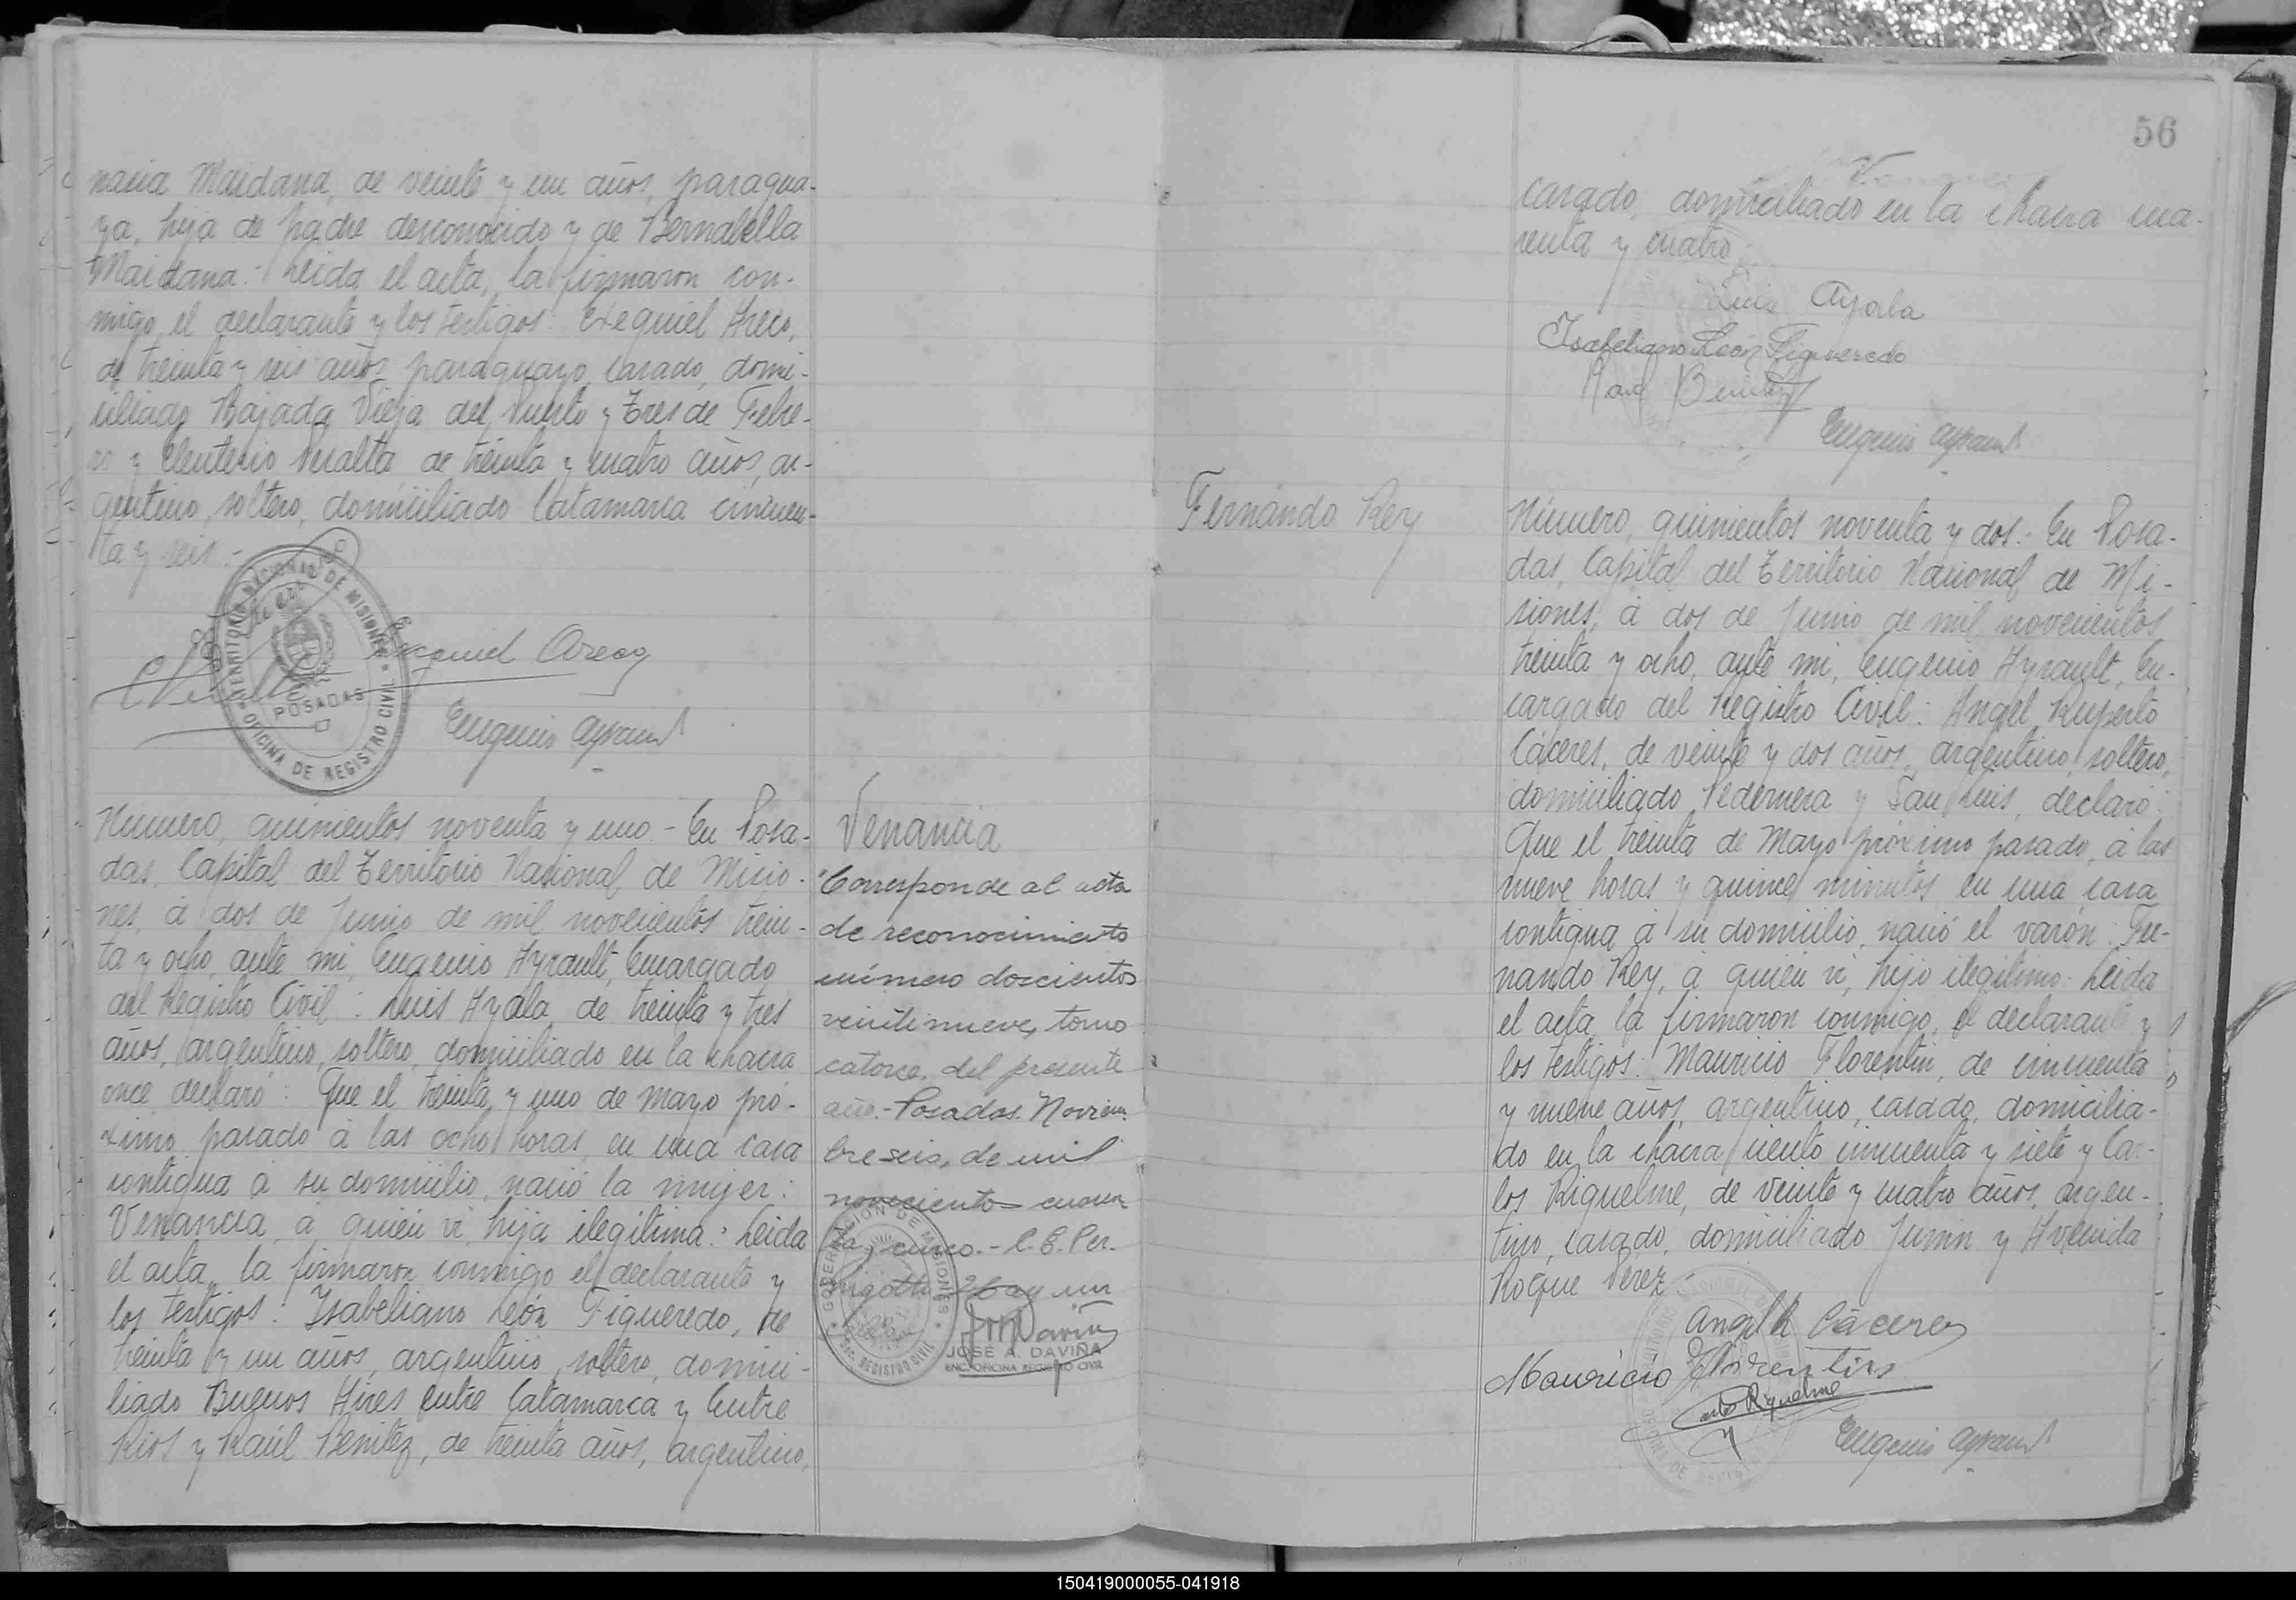 naria Maidana, de veinte y un años, paragua-
ya, hija de padre desconocido y de Bernabella
Maidana: Leida el acta, la firmaron con-
migo, el declarante y los testigos: Exequiel Areco,
de treinta y seis años, paraguayo, casado, domi-
ciliado Bajada Vieja del Puerto y Tres de Febre-
ro y Eleuterio Peralta de treinta y cuatro años, ar-
gentino, soltero, domiciliado Catamarca cincuen-
ta y seis.-
TERRITORIO NACIONAL DE MISIONES
POSADAS
OFICINA DE REGISTRO CIVIL
Exequiel Areco
Eugenio Ayrault
Número, quinientos noventa y uno.- En Posa-
das, Capital del Territorio Nacional, de Misio-
nes, á dos de Junio de mil novecientos trein-
ta y ocho, ante mi, Eugenio Ayrault, Encargado
del Registro Civil: Luis Ayala, de treinta y tres
años, argentino, soltero, domiciliado en la chacra
once declaró: Que el treinta y uno de Mayo pró-
ximo pasado á las ocho horas, en una casa
contigua á su domicilio, nació la mujer:
Venancia, á quién vi, hija ilegítima: Leida
el acta, la firmaron conmigo el declarante y
los testigos: Isabeliano León Figueredo, de
treinta y un años, argentino, soltero, domici-
liado Buenos Aires entre Catamarca y Entre
Rios y Raúl Benítez, de treinta años, argentino,
Venancia
"Corresponde al acta
de reconocimiento
número doscientos
veintinueve, tomo
catorce, del presente
año.- Posadas. Noviem
bre seis, de mil
novecientos cuaren
ta y cinco.- C. E. Per.
hay un
GOBERNACION DE MISIONES
REGISTRO CIVIL
JOSÉ A. DAVIÑA
ENC. OFICINA REGISTRO CIVIL
56
casado, domiciliado en la chacra cua-
renta y cuatro
Luis Ayala
Isabeliano León Figueredo
Raul Benitez
Eugenio Ayrault
Fernando Rey
Número, quinientos noventa y dos.- En Posa-
das, Capital del Territorio Nacional, de Mi-
siones, á dos de Junio de mil novecientos
treinta y ocho, ante mi, Eugenio Ayrault, En-
cargado del Registro Civil: Angel Ruperto
Cáceres, de veinte y dos años, argentino, soltero,
domiciliado Pedernera y San Luis, declaró:
Que el treinta de Mayo próximo pasado, á las
nueve horas y quince minutos en una casa
contigua á su domicilio, nació el varón: Fer-
nando Rey, á quién vi, hijo ilegítimo: Leida
el acta, la firmaron conmigo, el declarante y
los testigos: Mauricio Florentin, de cincuenta
y nueve años, argentino, casado, domicilia-
do en la chacra ciento cincuenta y siete y Car-
los Riquelme, de veinte y cuatro años, argen-
tino, casado, domiciliado Junin y Avenida
Roque Perez.-
Angel R Cáceres
Mauricio Florentin
Carlos Riquelme
Eugenio Ayrault
150419000055-041918